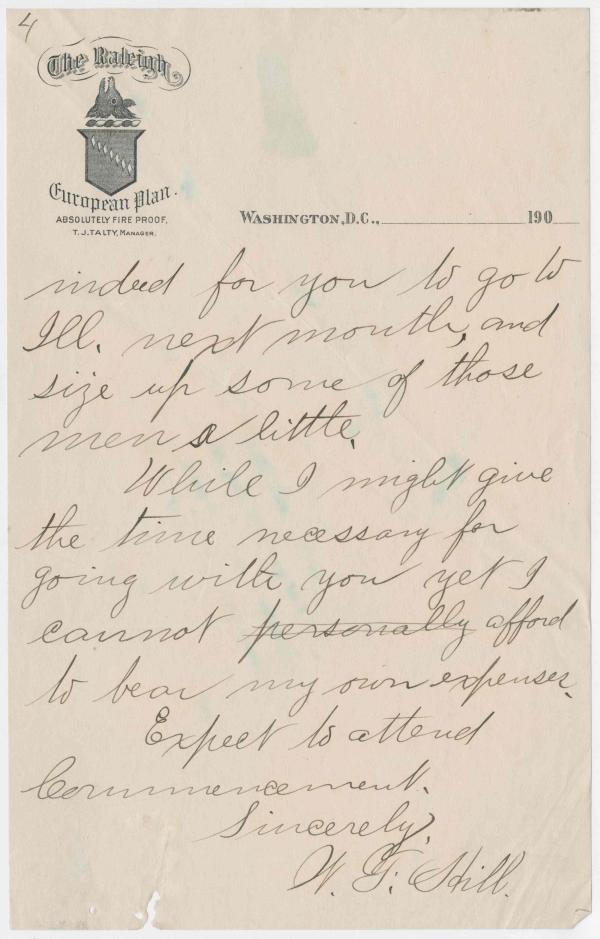 4
The Raleigh
European Plan.
ABSOLUTELY FIRE PROOF.
T. J. TALTY, MANAGER.
WASHINGTON, D.C., 190
indeed for you to go to
Ill. next month, and
size up some of those
men a little.
While I might give
the time necessary for
going with you yet I
cannot personally afford
to bear my own expenses.
Expect to attend
Commencement.
Sincerely,
W. F. Hill.